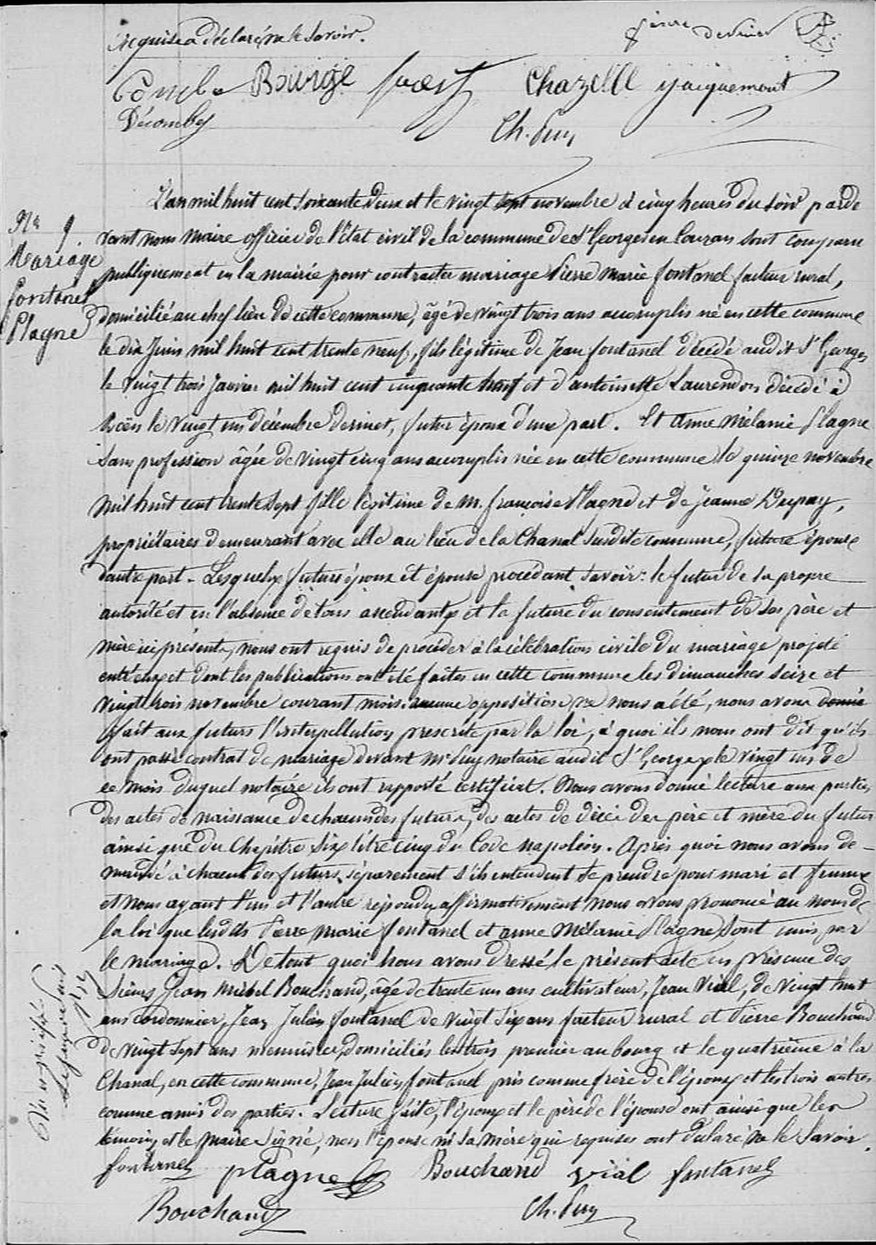 requise a déclaré ne le savoir.
Bourge Chazelle Jacquemont
Décombe
Ch. Puy
L'an mil huit cent soixante deux et le vingt sept novembre à cinq heures du soir parde
vant nous maire officier de l'état civil de la commune de St Georges en Couzan sont comparu
publiquement en la mairie pour contracter mariage Pierre Marie fontanel facteur rural,
domicilié au chef lieu de cette commune, âgé de vingt trois ans accomplis né en cette commune
le dix Juin mil huit cent trente neuf, fils légitime de Jean fontanel décédé audit St Georges
le vingt trois Janvier mil huit cent cinquante et d'antoinette Laurendon décédé à
le vingt un décembre dernier, futur époux d'une part. Et Anne Mélanie Plagne
sans profession âgée de vingt cinq ans accomplis née en cette commune le quinze novembre
mil huit cent trente sept fille légitime de m. françois Plagne et de jeanne Dupuy,
propriétaires demeurant avec elle au lieu de la Chanal susdite commune, future épouse
d'autre part. Lesquels futurs époux et épouse procédant savoir: le futur de sa propre
autorité et en l'absence de tous ascendants et la future du consentement de ses père et
mère ici présents, nous ont requis de procéder à la célébration civile du mariage projeté
entr'eux et dont les publications ont été faites en cette commune les dimanches seize et
vingt trois novembre courant mois, aucune opposition ne nous a été, nous avons donné
fait aux futurs l'interpellation prescrite par la loi, à quoi ils nous ont dit qu'ils
ont passé contrat de mariage devant Me Puy notaire audit St Georges le vingt un de
ce mois duquel notaire ils ont rapporté certificat. Nous avons donné lecture aux parties
des actes de naissance de chacun des futurs, des actes de décès des père et mère du futur
ainsi que du Chapitre six titre cinq du Code napoléon. Après quoi nous avons de-
mandé à chacun des futurs séparement s'ils entendent se prendre pour mari et femme
et nous ayant l'un et l'autre répondu affirmativement nous avons prononcé au nom de
la loi que lesdits Pierre marie fontanel et anne Mélanie Plagne sont unis par
le mariage. De tout quoi nous avons dressé le présent acte en présence des
sieurs Jean Michel Bouchand, âgé de trente un ans cultivateur, Jean Vial, de vingt huit
ans cordonnier, Jean Julien fontanel de vingt six ans facteur rural et Pierre Bouchand
de vingt sept ans menuisier, domiciliés les trois premier au bourg et le quatrième à la
Chanal, en cette commune, Jean Julien fontanel pris comme frère de l'époux et les trois autres
comme amis des parties. Lecture faite, l'époux et le père de l'épouse ont ainsi que les
témoins et le maire signé, non l'épouse ni sa mère qui requises ont déclaré ne le savoir.
fontanel plagne Bouchand vial fontanel
Bouchand Ch. Puy
No 9.
Mariage
fontanel
Plagne